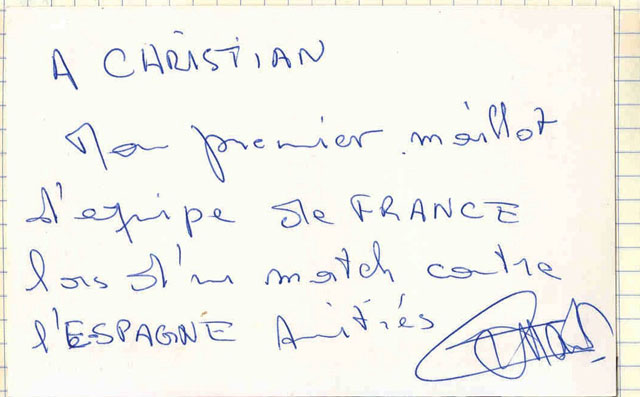 A CHRISTIAN
Mon premier maillot
d'equipe de FRANCE
lors d'un match contre
l'ESPAGNE Amitiés